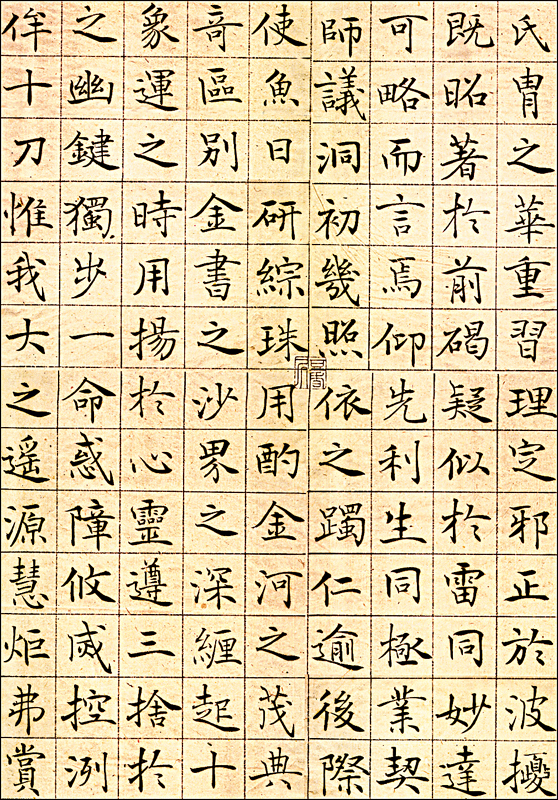 氏胄之華重習理定邪正於波擾
既昭著於前碣疑似於雷同妙達
可略而言焉仰先利生同極業契
師議洞初幾照依之躅仁逾後際
使魚日研綜珠用酌金河之茂典
竒區別金書之沙界之深纏起十
象運之時用揚於心靈遵三捨於
之幽鍵獨步一命惑障攸烕控洌
侔十力惟我大之遥源慧炬弗賞